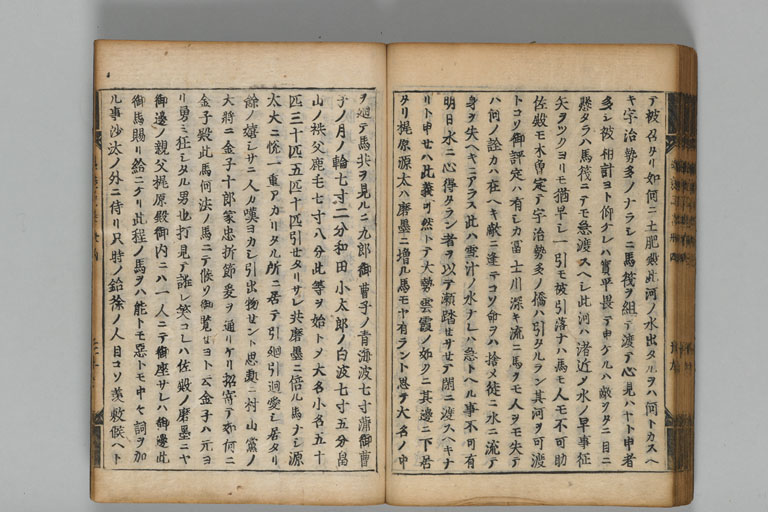 テ被召タリ如何ニ土肥殿此河ノ水出タルヲハ何トカスヘ
キ宇治勢多ノナラシニ馬筏ヲ組テ渡テ心見ハヤト申者
多シ被相計ヨト仰ケレハ實平畏テ申ケルハ敵ヲタニ目ニ
懸タラハ馬筏ニテモ急渡スヘシ此河ハ渚近メ水ノ早事征
矢ヲツクヨリモ猶早シ一引モ被引落ナハ馬モ人モ不可助
佐殿モ木曽定テ宇治勢多ノ橋ハ引タルラン其河ヲ可渡
トコソ御評定ハ有シカ冨士川深キ流ニ馬ヲモ人ヲモ失テ
ハ何ノ詮カハ在ヘキ敵ニ逢テコソ命ヲハ捨メ徒ニ水ニ流テ
身ヲ失ヘキニアラス此ハ雪汁ノ水ナレハ急トヘル事不可有
明日水ニ心得タラン者ヲ以テ瀬踏セサセテ閑ニ渡スヘキナ
リト申セハ此義可然トテ大勢雲霞ノ如クニ其邊ニ下居
タリ梶原源太ハ磨墨ニ増ル馬モヤ有ラント思テ大名ノ中
ヲ廻テ馬共ヲ見ルニ九郎御曹子ノ青海波七寸蒲御曹
子ノ月ノ輪七寸二分和田小太郎ノ白波七寸五分畠
山ノ秩父鹿毛七寸八分此等ヲ始トメ大名小名五十
匹三十匹五匹十匹引セタリサレ共磨墨ニ倍ル馬ナシ源
太大ニ悦一重アカリタル所ニ居テ引廻引廻愛シ居タリ
餘ノ嬉シサニ人カ嘆ヨカシ引出物セント思ニ村山黨ノ
大將ニ金子十郎家忠折節爰ヲ通リケリ招寄テ如何ニ
金子殿此馬何法ノ馬ニテ候ソ御覧セヨト云金子ハ元ヨ
リ勇ミ狂シタル男也打見テ誰レ笑コレハ佐殿ノ磨墨ニヤ
御邊ノ親父梶原殿御内ニハ一人ニテ御座サレハ御邊此
御馬賜リ給ニケリ此程ノ馬ヲハ能トモ惡トモ申セ詞ヲ加
ル事沙汰ノ外ニ侍リ只時ノ餘ノ人目コソ羨敷候ヘト